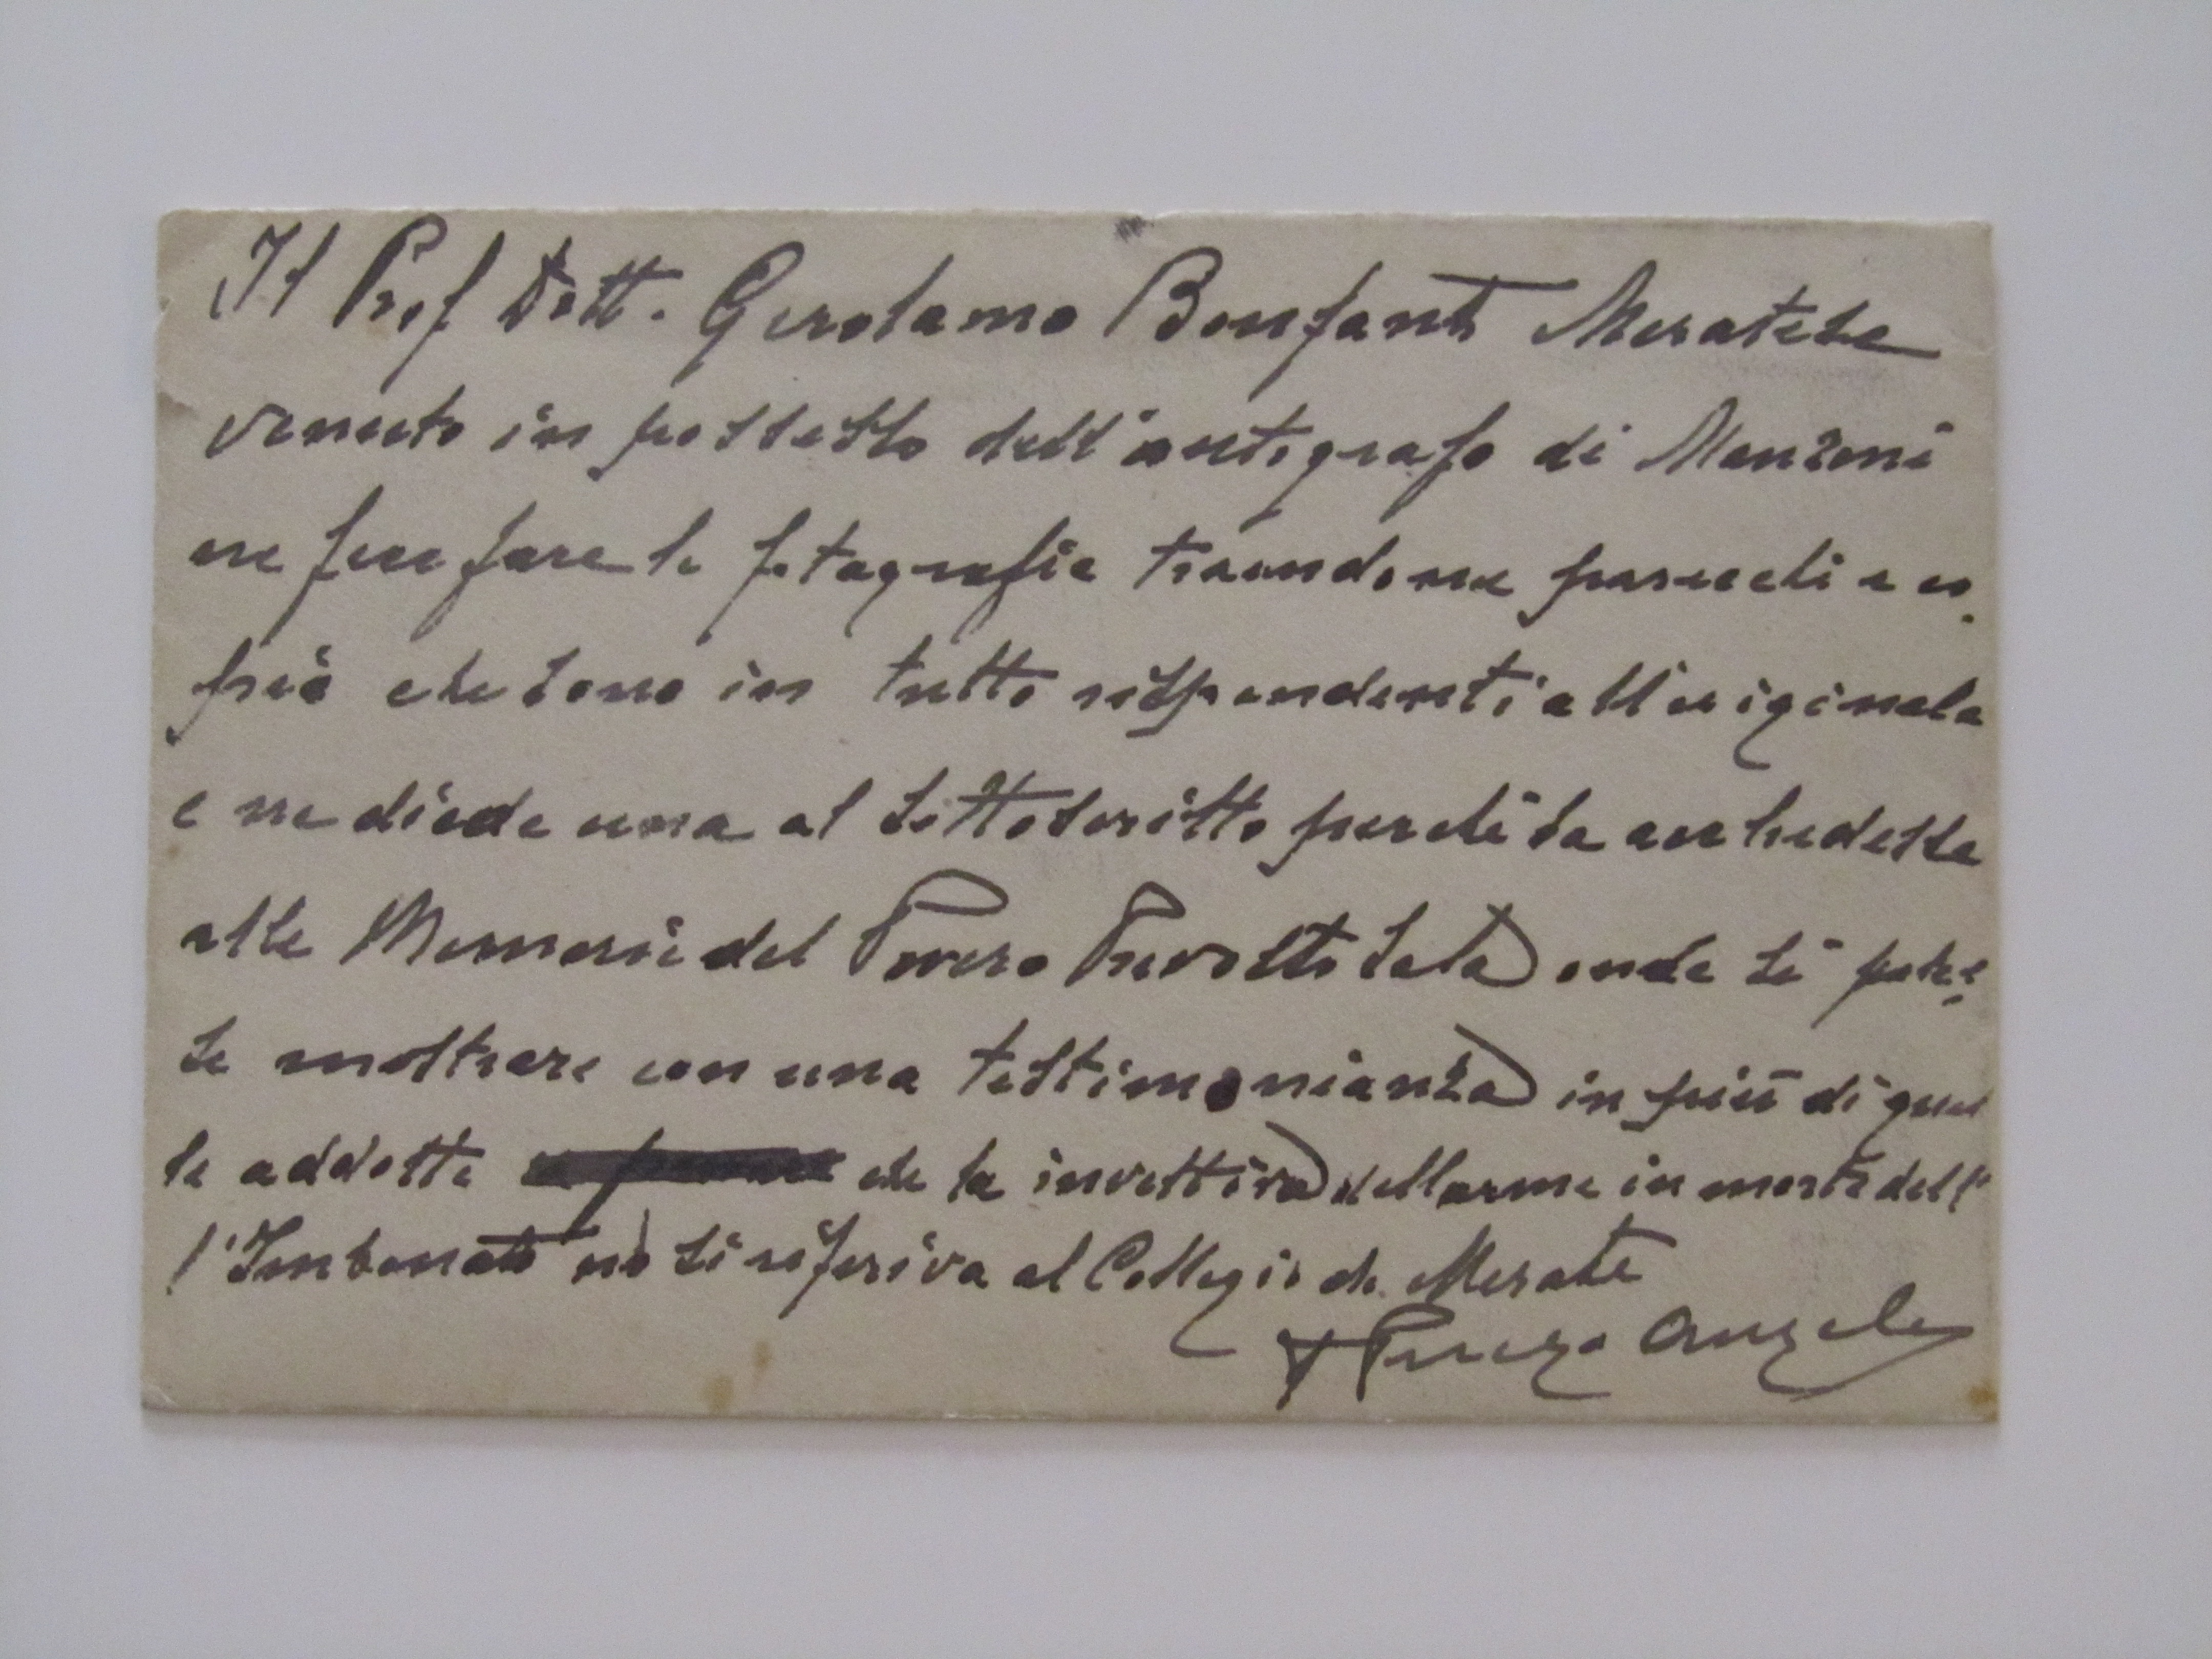 Il Prof Dott. Gerolamo Bonfanti Meratese
venuto in possesso dell'autografo di Manzoni
ne fece fare le fotografie traendone parecchie co
pie che sono in tutto rispondenti all'originale
e ne diede una al sottoscritto perchè la archedesse
alle Memorie del Povero Prevosto Sala onde si potes
se mostrare con una testimonianza in più di quel
le addotte che la invettiva del carme in morte dell'
l'Imbonati no si riferiva al Collegio di Merate
Angelo